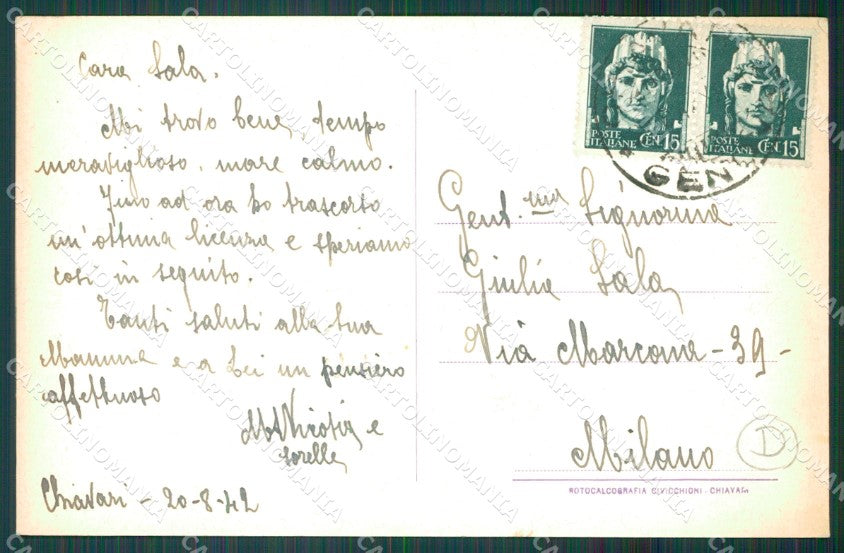 Cara Sala.
Mi trovo bene, tempo
meraviglioso, mare calmo.
Fino ad ora ho trascorso
un'ottima licenza e speriamo
così in seguito.
Tanti saluti alla sua
Mamma e a Lei un pensiero
affettuoso
e
sorelle
Chiavari - 20-8-42
POSTE
ITALIANE CEN 15
POSTE
ITALIANE CEN 15
GEN
Gent.ma Signorina
Giulia Sala
Via Marcona - 39 -
Milano
D
ROTOCALCOGRAFIA CIVICCHIONI - CHIAVARI
CARTOLINOMANIA